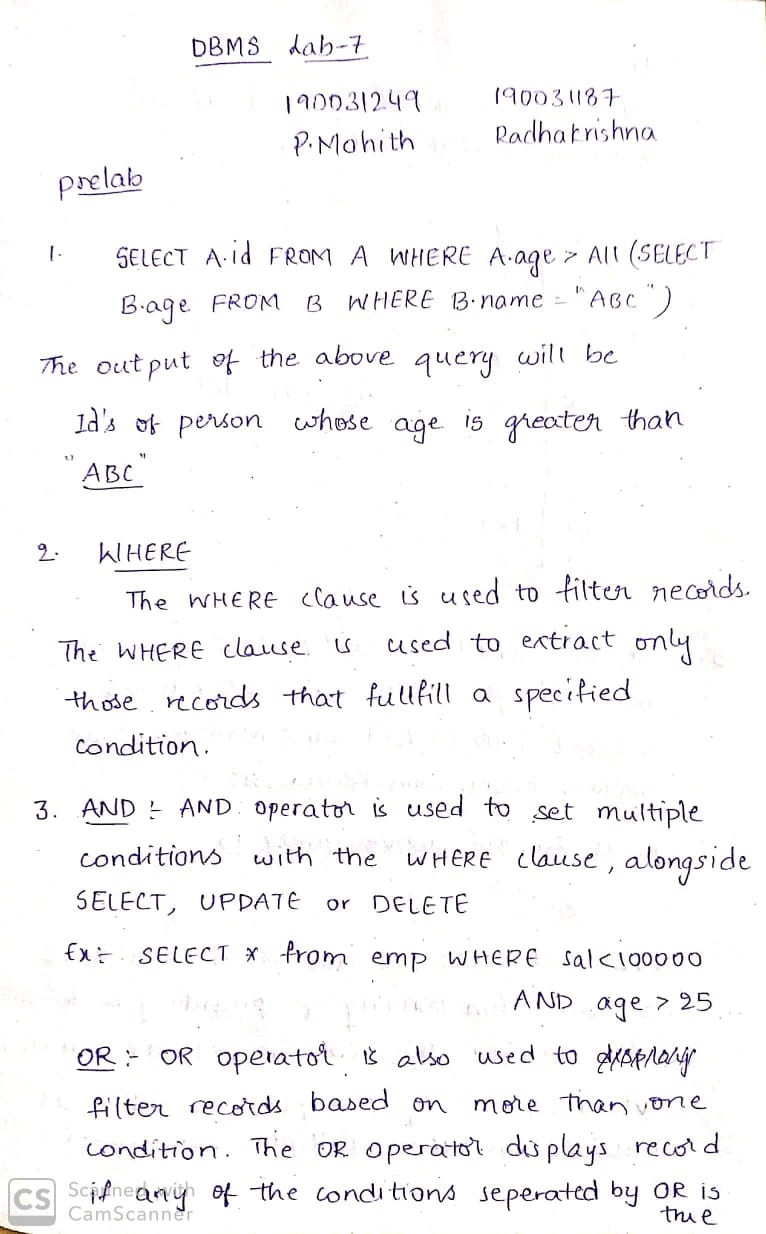 DBMS Lab-7
190031249 190031187
P. Mohith Radhakrishna
prelab
1. SELECT A.id FROM A WHERE A.age > All (SELECT
B.age FROM B WHERE B.name = "ABC")
The output of the above query will be
Id's of person whose age is greater than
"ABC"
2. WHERE
The WHERE clause is used to filter records.
The WHERE clause is used to extract only
those records that fullfill a specified
condition.
3. AND :- AND operator is used to set multiple
conditions with the WHERE clause, alongside
SELECT, UPDATE or DELETE
Ex:- SELECT * from emp WHERE sal<100000
AND age > 25
OR :- OR operator is also used to display
filter records based on more than one
condition. The OR operator displays record
if any of the conditions seperated by OR is
true
CS Scanned with
CamScanner